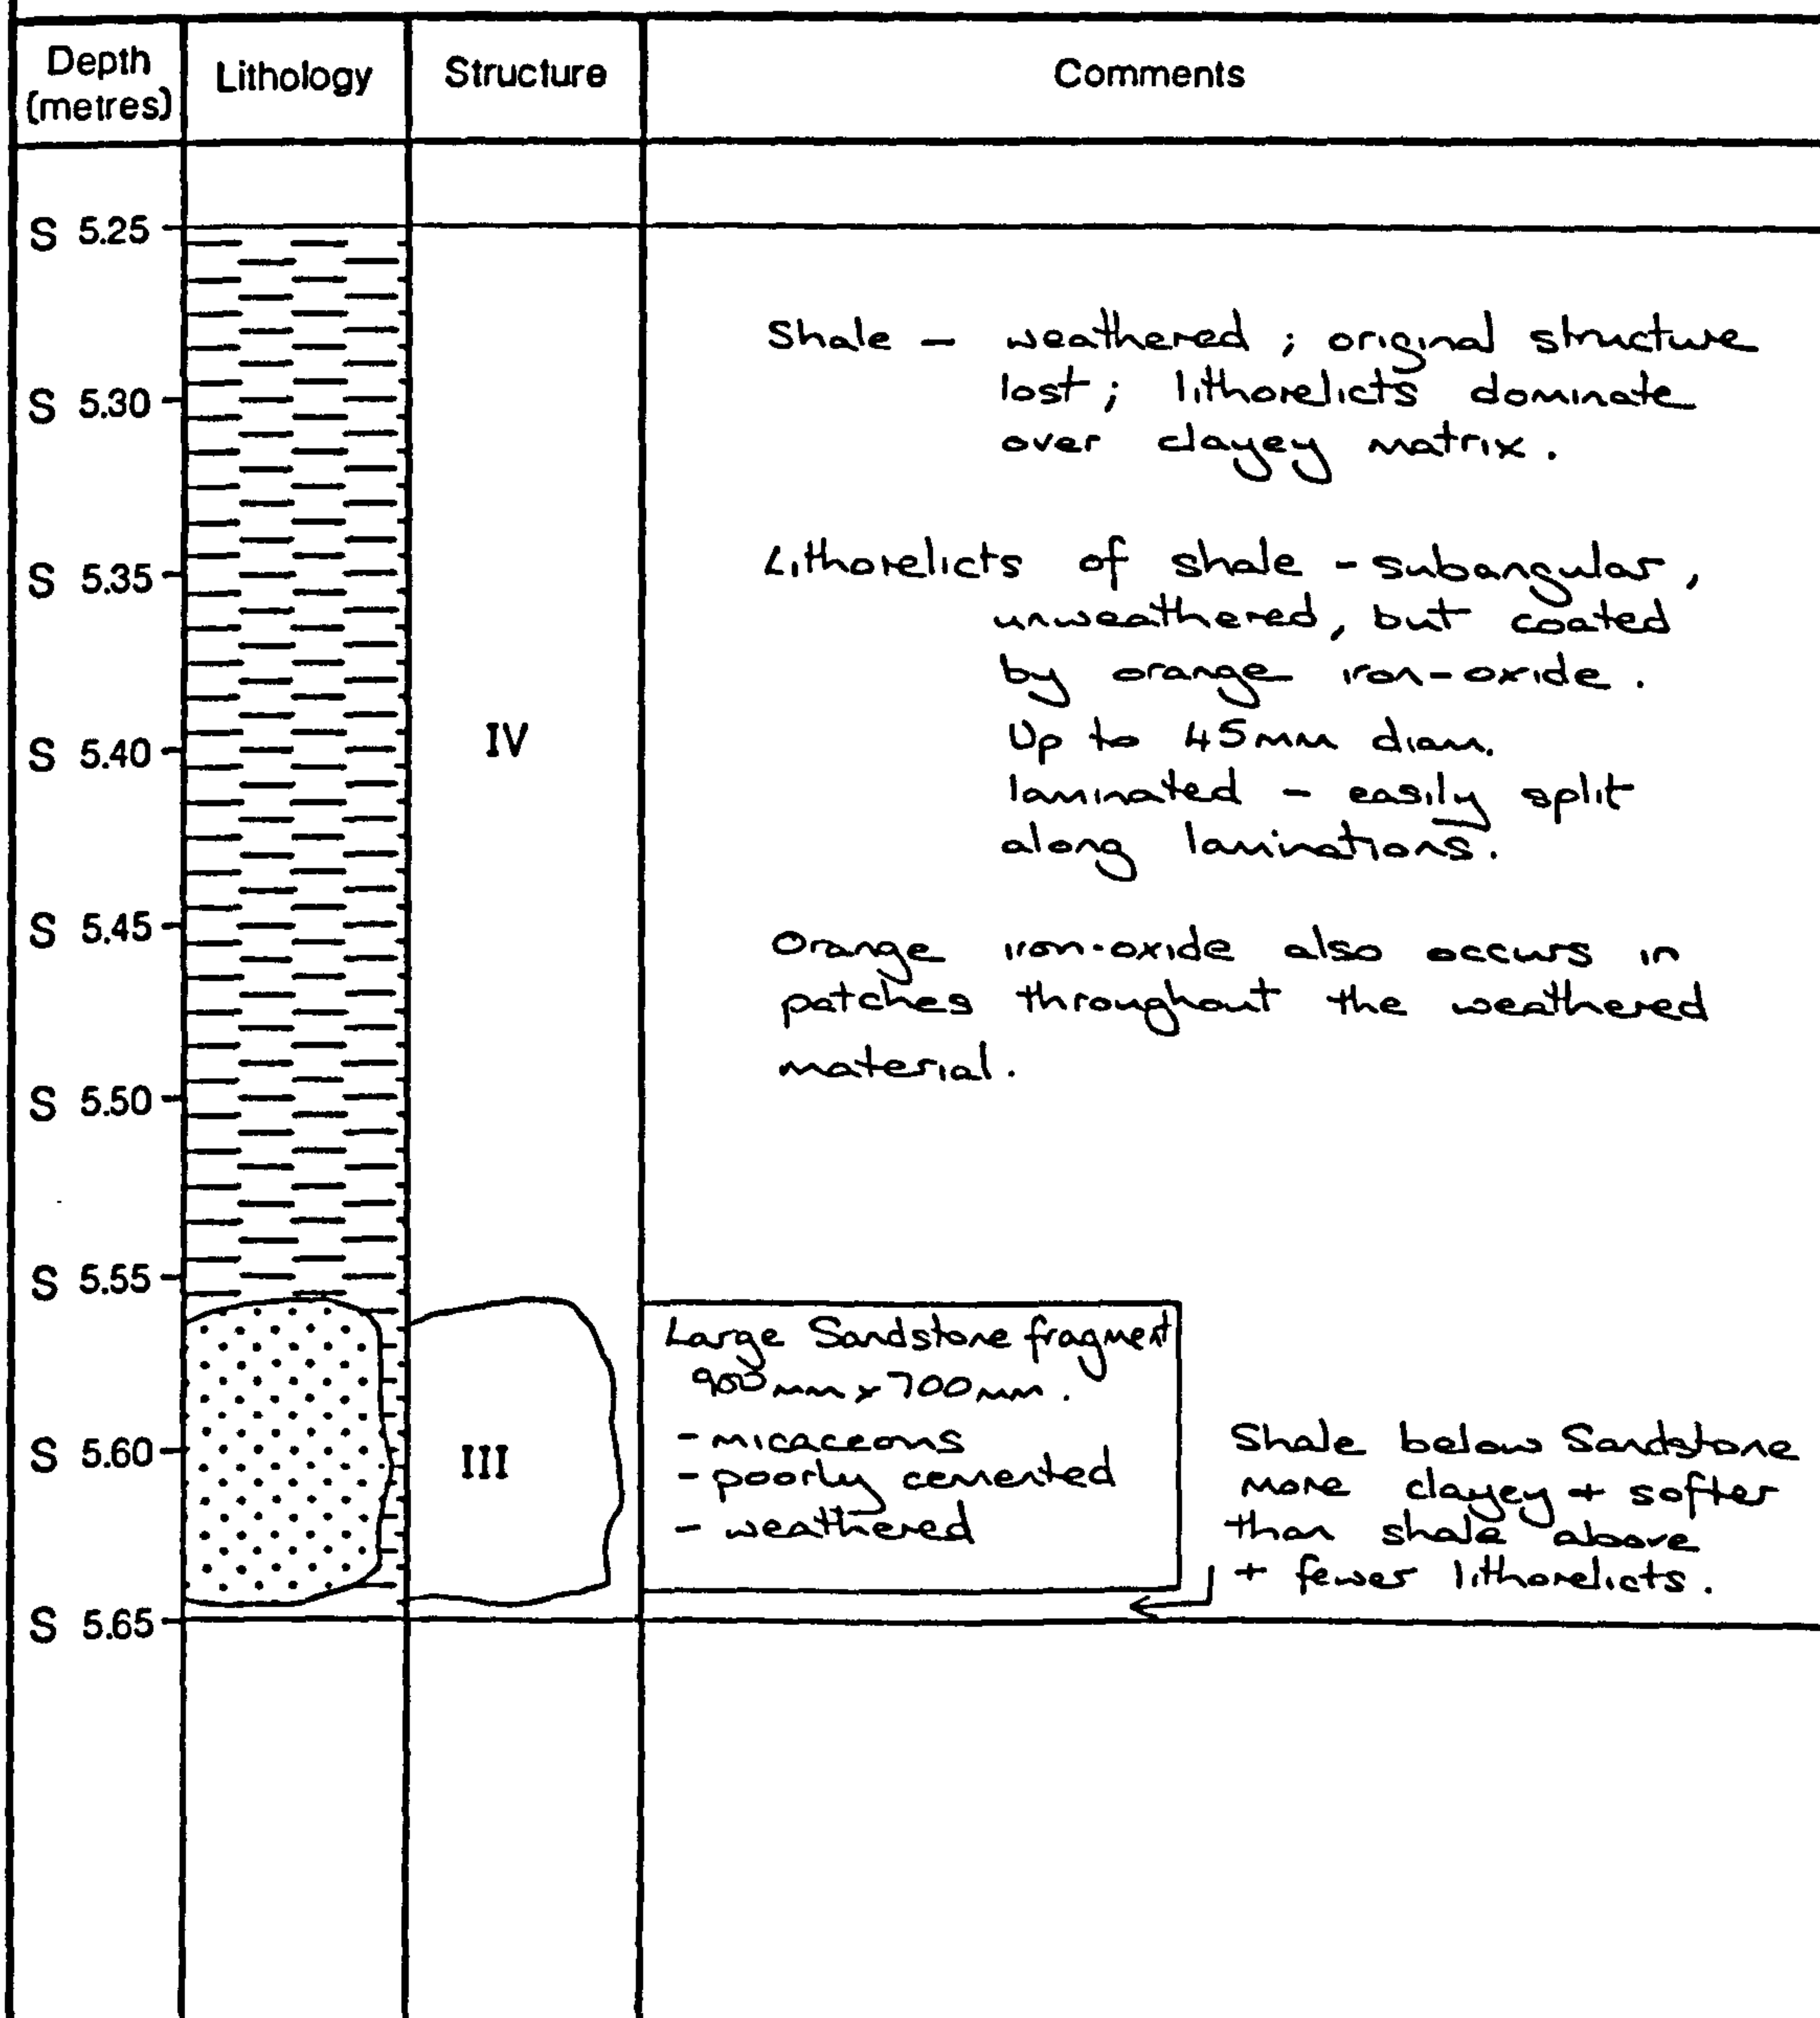 Depth
(metres)
Lithology
Structure
Comments
S 5.25
S 5.30
S 5.35
S 5.40
S 5.45
S 5.50
S 5.55
S 5.60
S 5.65
IV
III
Shale – weathered ; original structure
lost ; lithorelicts dominate
over clayey matrix .
Lithorelicts of shale – subangular ,
unweathered, but coated
by orange iron-oxide .
Up to 45mm diam.
laminated – easily split
along laminations.
Orange iron-oxide also occurs in
patches throughout the weathered
material .
Large Sandstone fragment
900mm x 700mm .
- micaceous
- poorly cemented
- weathered
Shale below Sandstone
more clayey + softer
than shale above
+ fewer lithorelicts .